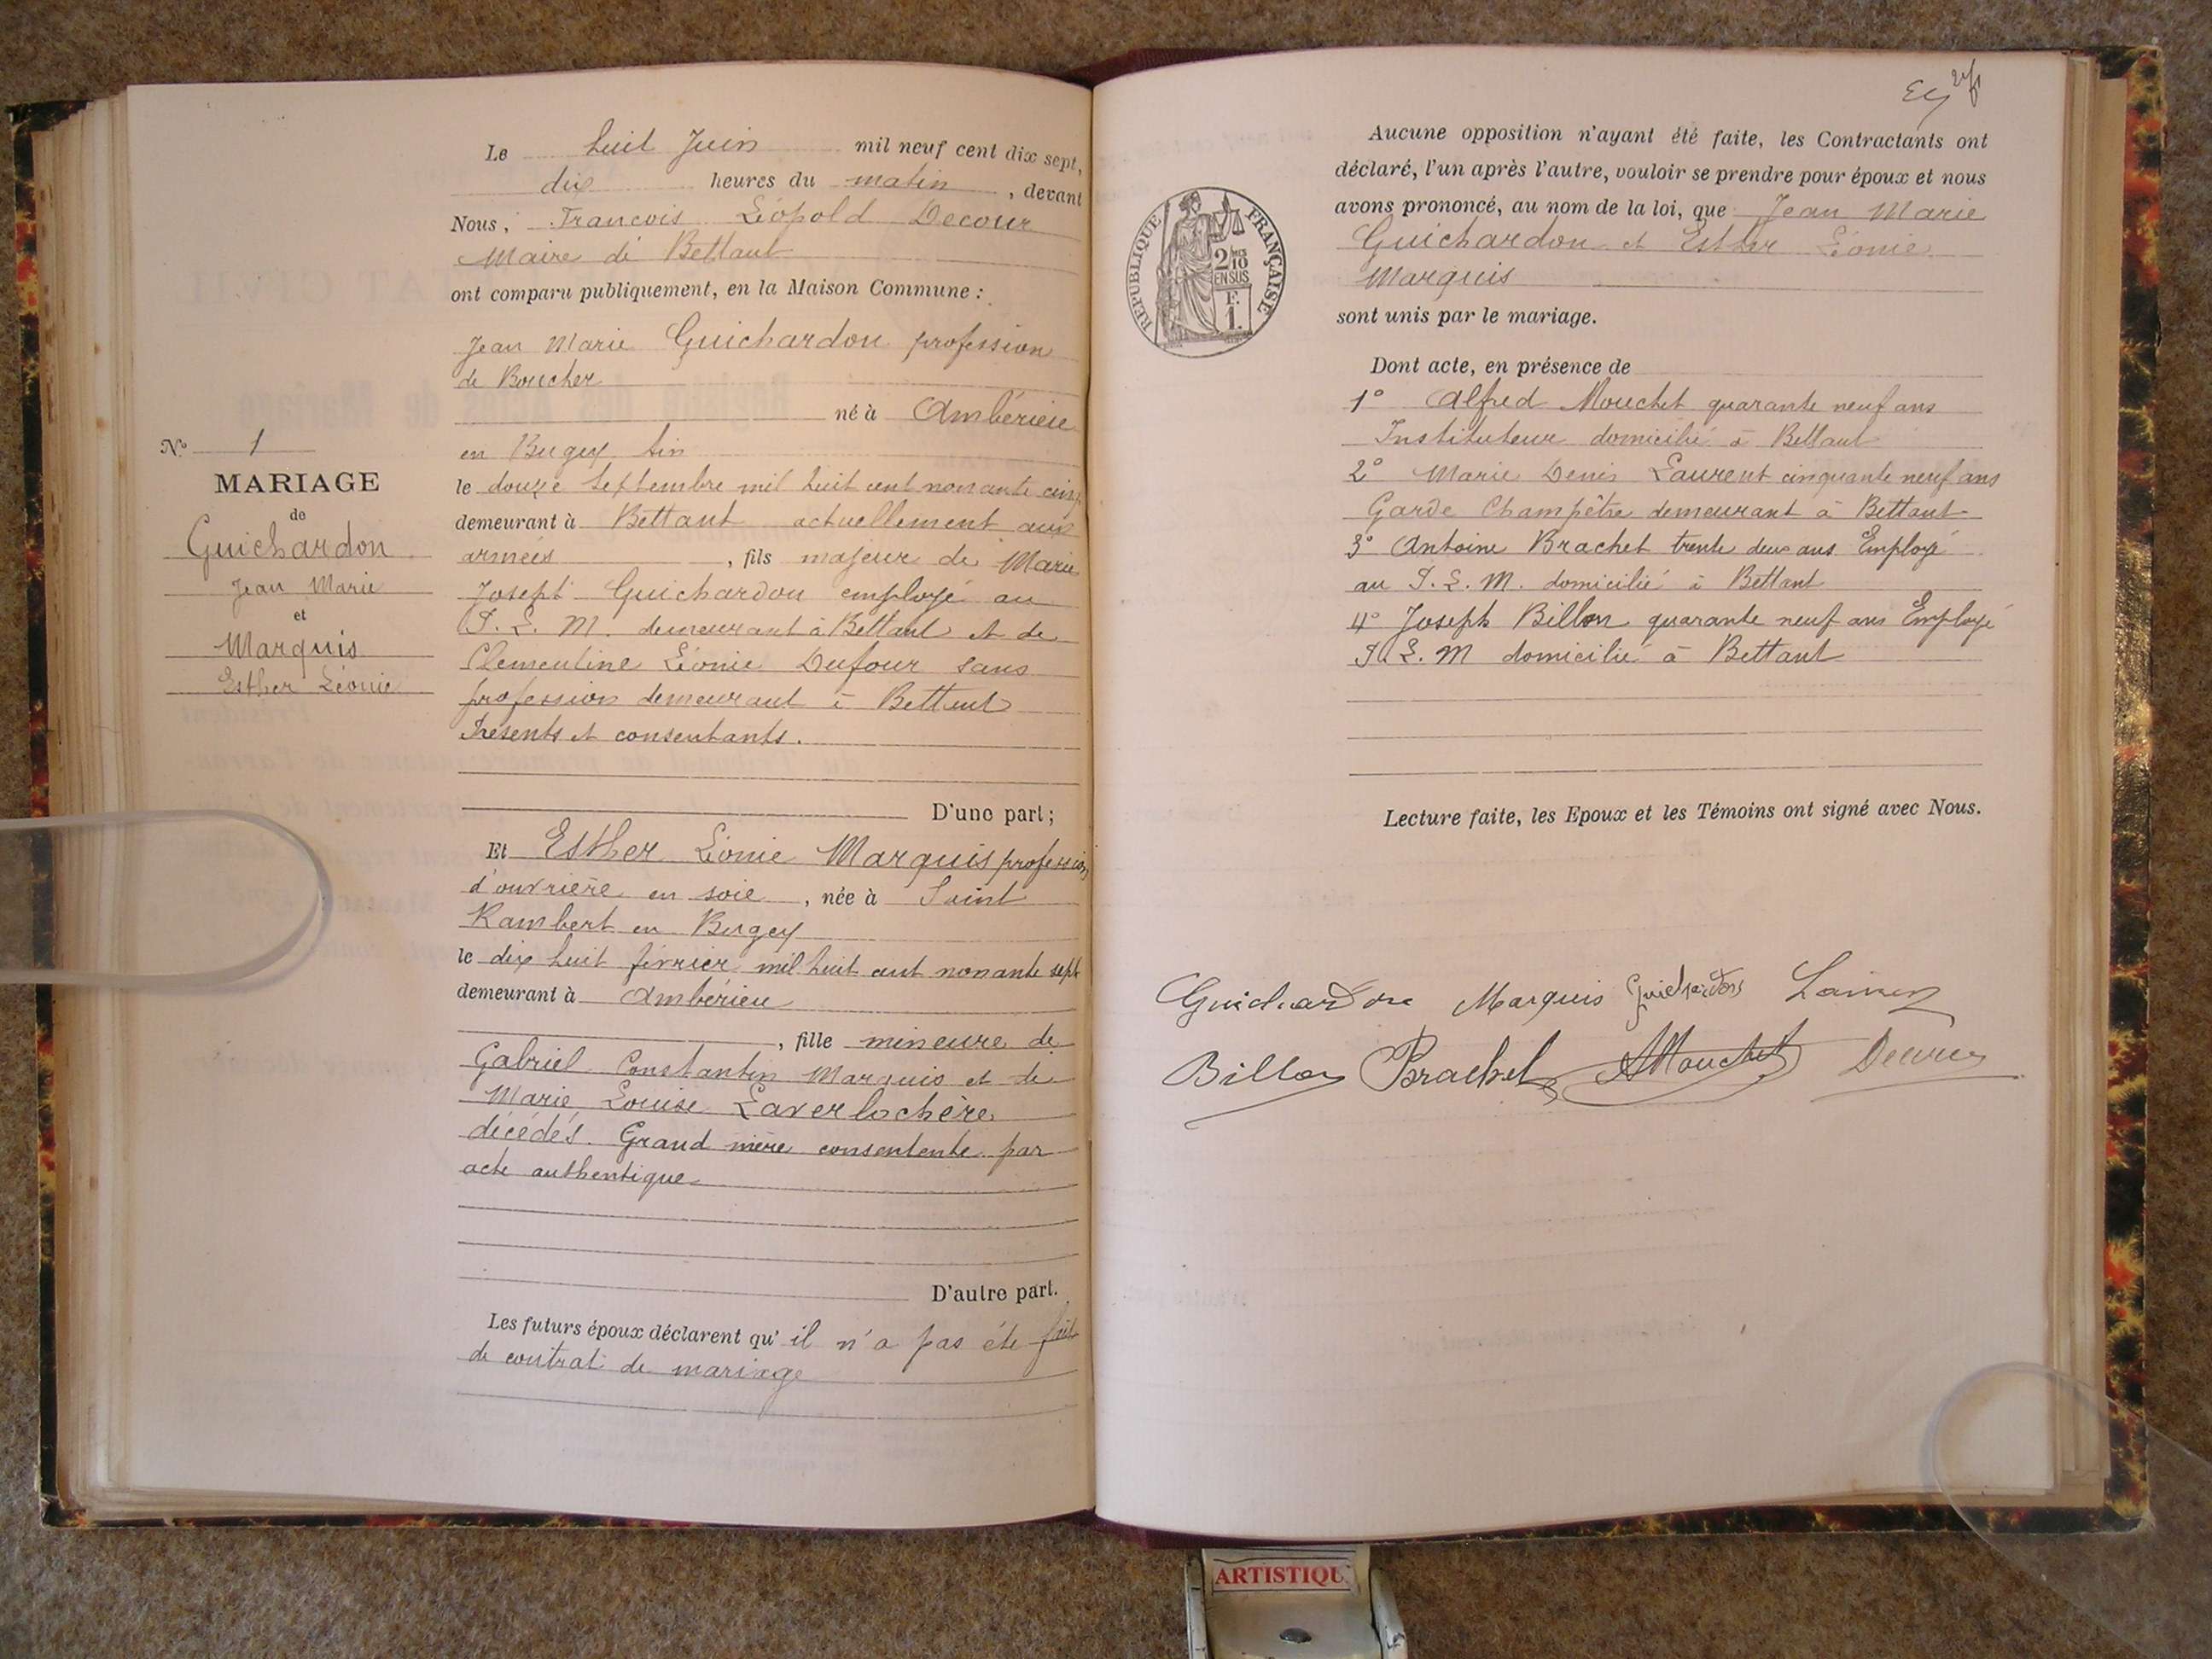 N° 1
MARIAGE
de
Guichardon
Jean Marie
et
Marquis
Esther Léonie
Le huit Juin mil neuf cent dix sept,
dix heures du matin, devant
Nous, Francois Léopold Decour
Maire de Bettant
ont comparu publiquement, en la Maison Commune :
Jean Marie Guichardon profession
de Boucher
né à Ambérieu
en Bugey Ain
le douze Septembre mil huit cent nonante cinq
demeurant à Bettant actuellement aux
armées, fils majeur de Marie
Joseph Guichardon employé au
P. L. M. demeurant à Bettant et de
Clementine Léonie Dufour sans
profession demeurant à Bettant
Présents et consentants.
D'une part ;
Et Esther Léonie Marquis profession
d'ouvrière en soie, née à Saint
Rambert en Bugey
le dix huit février mil huit cent nonante sept
demeurant à Ambérieu
, fille mineure de
Gabriel Constantin Marquis et de
Marie Louise Laverlochère
décédés. Grand mère consentente par
acte authentique
D'autre part.
Les futurs époux déclarent qu'il n'a pas été fait
de contrat de mariage
Aucune opposition n'ayant été faite, les Contractants ont
déclaré, l'un après l'autre, vouloir se prendre pour époux et nous
avons prononcé, au nom de la loi, que Jean Marie
Guichardon et Esther Léonie
Marquis
sont unis par le mariage.
RÉPUBLIQUE FRANÇAISE
2/10
EN SUS
F.
1.
Dont acte, en présence de
1° Alfred Mouchet quarante neuf ans
Instituteur domicilié à Bettant
2° Marie Denis Laurent cinquante neuf ans
Garde Champêtre demeurant à Bettant
3° Antoine Brachet trente deux ans Employé
au P. L. M. domicilié à Bettant
4° Joseph Billon quarante neuf ans Employé
P. L. M domicilié à Bettant
Lecture faite, les Epoux et les Témoins ont signé avec Nous.
Guichardon Marquis Guichardon
Billon Brachet AMouchet Decour
ARTISTIQU